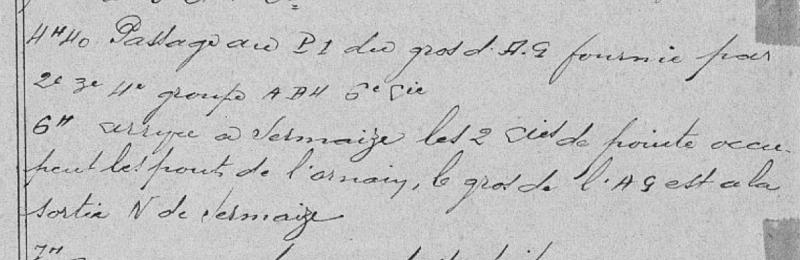 4H40 Passage au P1 du gros d'A.G fournie par
2e 3e 4e groupe ABH 6e Cie
6H arrivee a Sermaize les 2 Cies de pointe occu-
pent les ponts de l'ornain, le gros de l'AG est a la
sortie N de Sermaize
7H